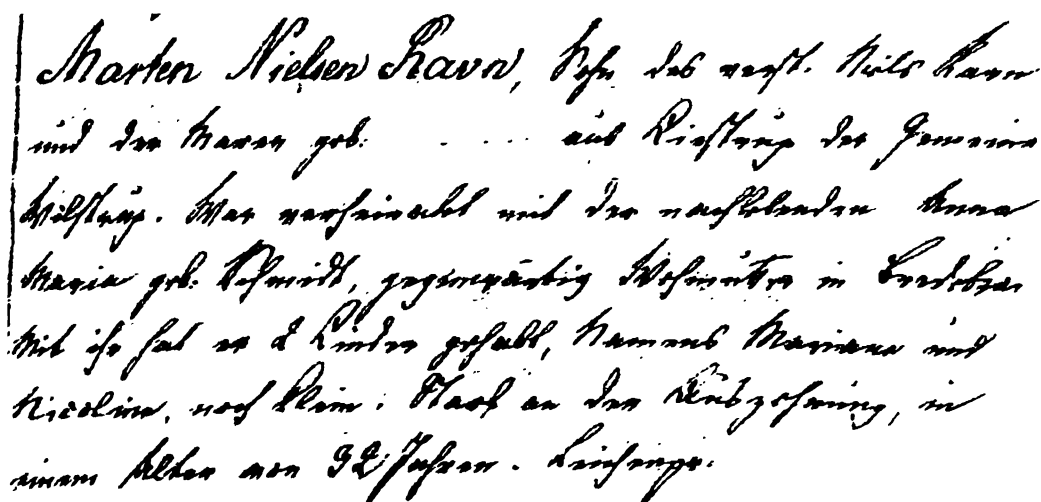 Marten Nielsen Ravn, Sohn des verst. Niels Ravn
und der Maren geb. . . . . . aus Kiestrup der Gemeine
Wilstrup. War verheirathet mit der nachlebenden Anna
Maria geb. Schmidt, gegenwärtig in Bredebro.
Mit ihr hat er 2 Kinder gehabt, Namens Mariane und
Nicoline, noch klein. Starb an der Auszehrung, in
einem Alter von 32 Jahren. Leichenpr.